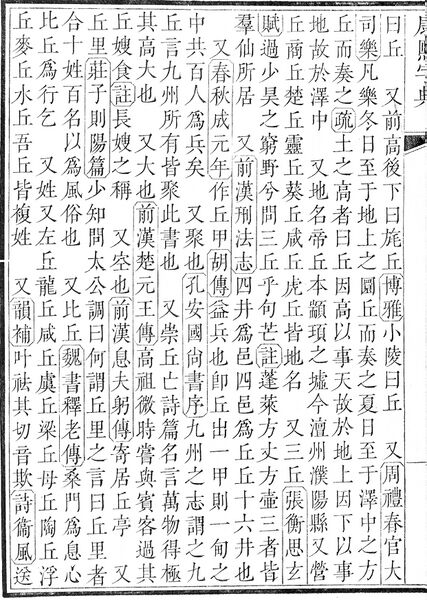 康熙字典
曰丘　又前高後下曰旄丘博雅小陵曰丘　又周禮春官大
司樂凡樂冬日至于地上之圜丘而奏之夏日至于澤中之方
丘而奏之疏土之高者曰丘因高以事天故於地上因下以事
地故於澤中　又地名帝丘本顓頊之墟今澶州濮陽縣又營
丘商丘楚丘靈丘葵丘咸丘虎丘皆地名　又三丘張衡思玄
賦過少昊之窮野兮問三丘乎句芒註蓬萊方丈方壺三者皆
羣仙所居　又前漢刑法志四井爲邑四邑爲丘丘十六井也
又春秋成元年作丘甲胡傳益兵也卽丘出一甲則一甸之
中共百人爲兵矣　又聚也孔安國尚書序九州之志謂之九
丘言九州所有皆聚此書也　又崇丘亡詩篇名言萬物得極
其高大也　又大也前漢楚元王傳高祖微時嘗與賓客過其
丘嫂食註長嫂之稱　又空也前漢息夫躬傳寄居丘亭　又
丘里莊子則陽篇少知問太公調曰何謂丘里之言曰丘里者
合十姓百名以爲風俗也　又比丘魏書釋老傳桑門爲息心
比丘爲行乞　又姓又左丘龍丘咸丘虞丘梁丘母丘陶丘浮
丘麥丘水丘吾丘皆複姓　又韻補叶祛其切音欺詩衞風送